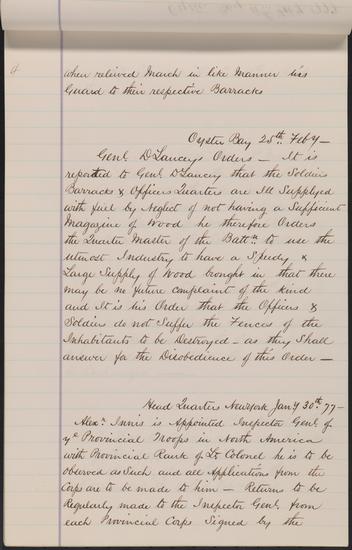 4
when relieved March in like Manner his
Guard to their respective Barracks
Oyster Bay 25th. Feby —
Genl. D'Lanceys Orders — It is
reported to Genl. D'Lancey that the Soldiers
Barracks & Officers Quarters are Ill Supplyed
with fuel by Neglect of not having a Sufficient
Magazine of Wood he therefore Orders
the Quarter Master of the Battn. to use the
utmost Industry to have a Speedy &
Large Supply of Wood bought in that there
may be no future complaint of the kind
and It is his Order that the Officers &
Soldiers do not Suffer the Fences of the
Inhabitants to be Destroyed — as they Shall
answer for the Disobedience of this Order —
Head Quarters New York Jany 30th. 77 —
Alexr. Innis is Appointed Inspector Genl. of
ye Provincial Troops in North America
with Provincial Rank of Lt Colonel he is to be
observed as Such and all Applications from the
Corps are to be made to him — Returns to be
Regularly made to the Inspector Genl. from
each Provincial Corps Signed by the